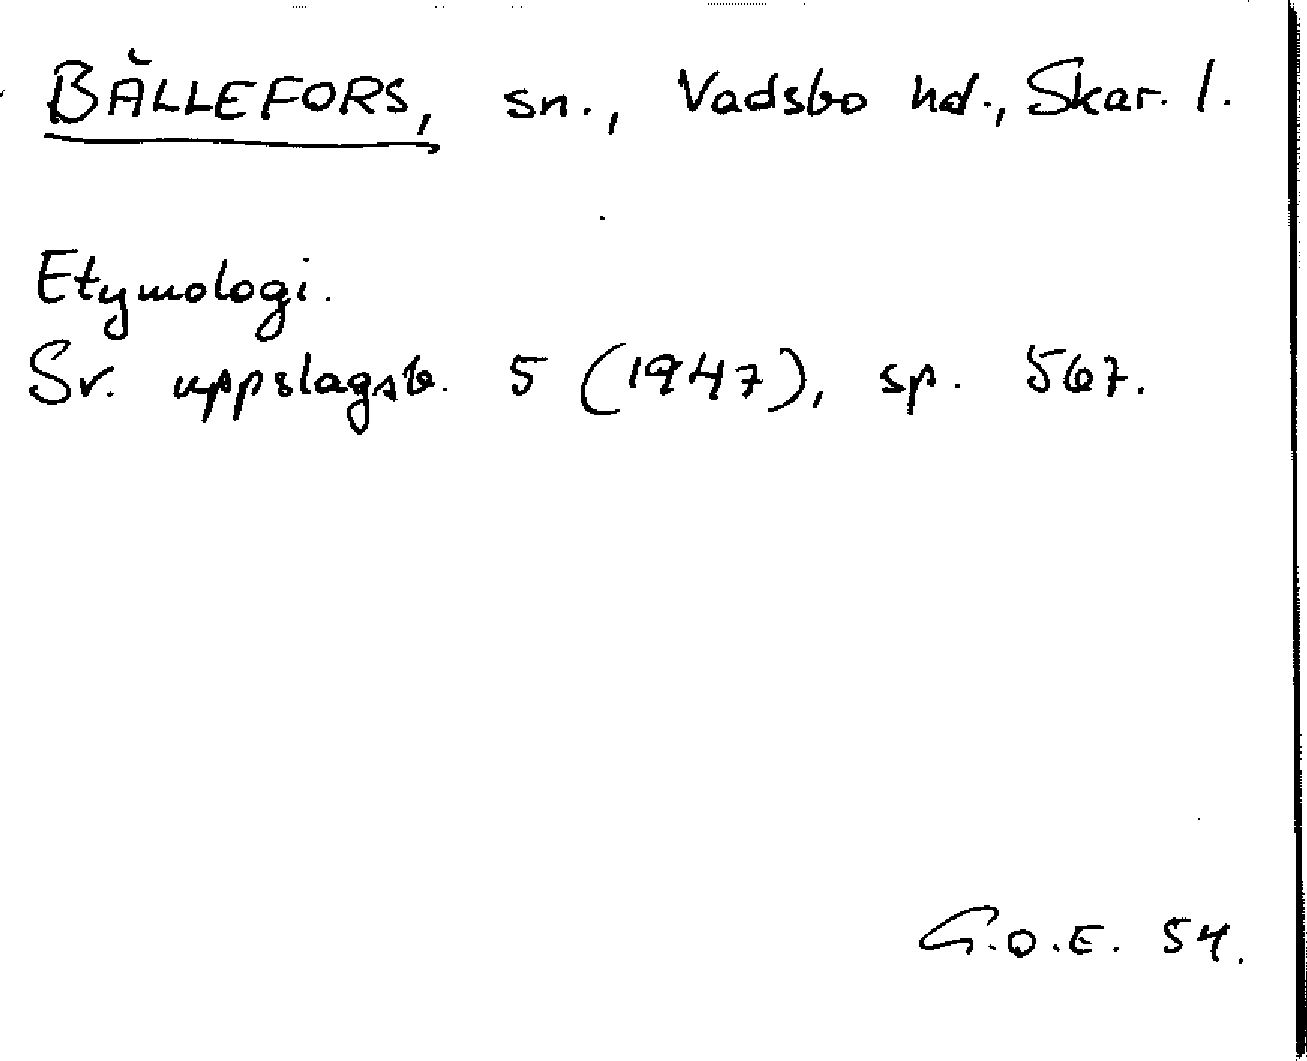 BÄLLEFORS, sn., Vadsbo hd., Skar. l.
Etymologi.
Sv. uppslagsb. 5 (1947), sp. 567.
G.O.E. 54.